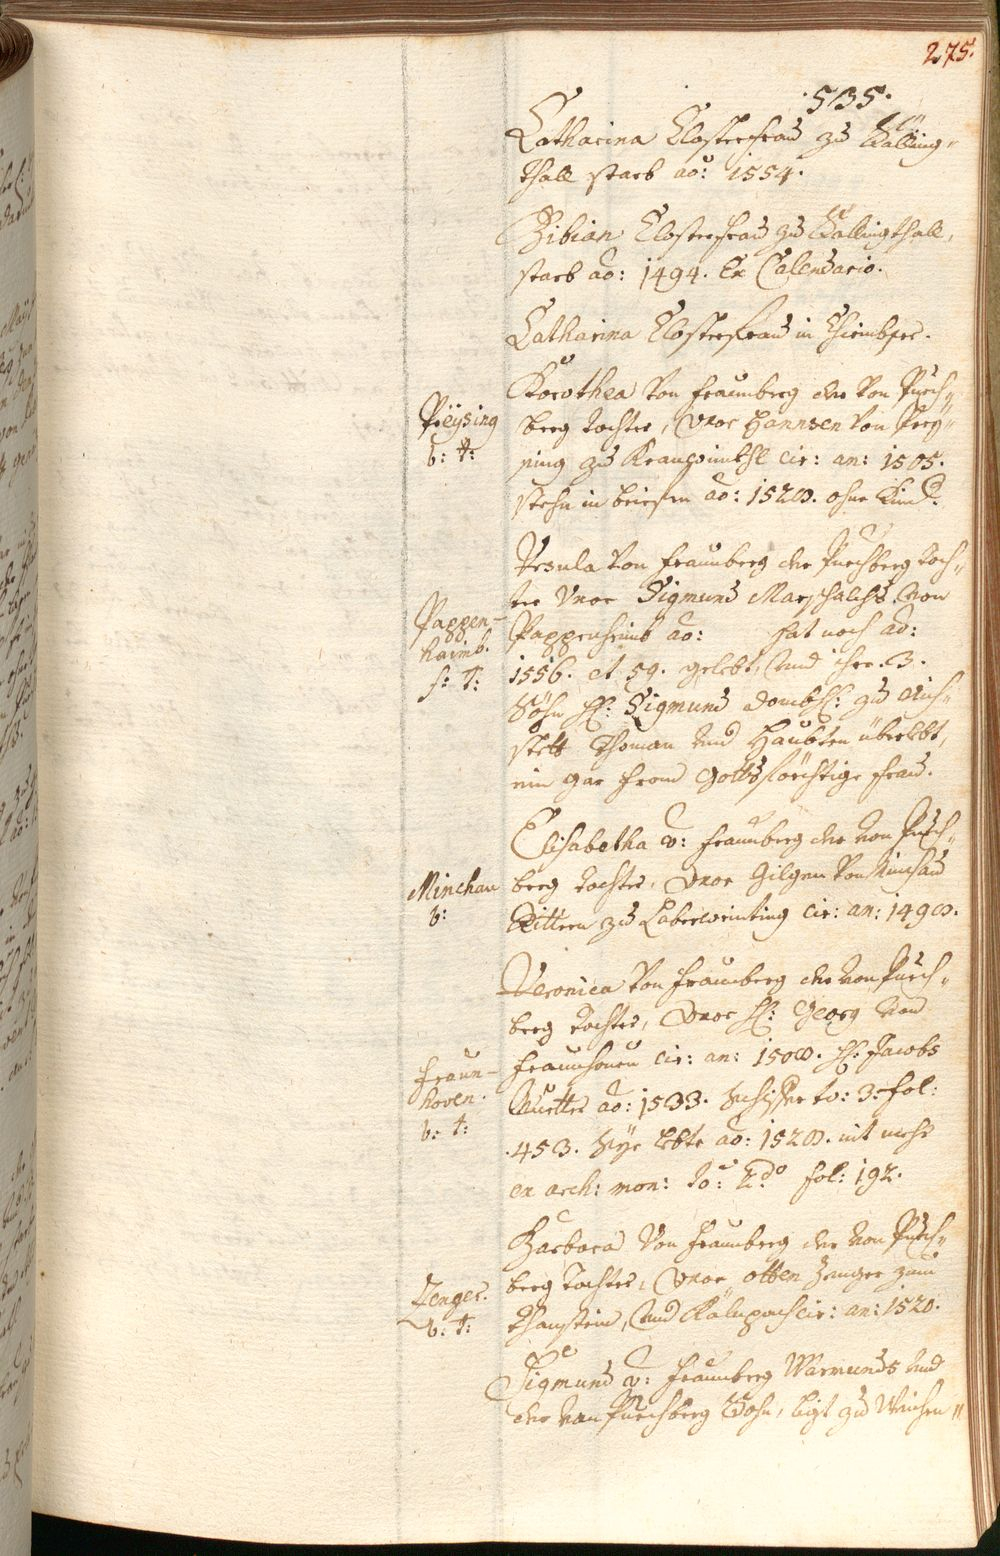 275.
535.
Catharina Closterfrau zu Kalling-
thall starb ao: 1554.
Bibian Closterfrau zu Kallingthall,
starb ao: 1494. Ex Calendario.
Catharina Closterfrau in
Dorothea von Fraunberg der von Purch-
Preÿsing
berg tochter, Uxor Hannsen von Prey-
v: t:
sing zu Kranwinkhl cir: an: 1505.
stehn in briefen ao: 1520. ohne Kind.
Ursula von Fraunberg der Purchberg toch-
ter Uxor Sigmund Marschalchs von
Pappen-
haimb.
Pappenheimb ao: hat noch ao:
f: t:
1556. et 59. gelebt, und ihre 3.
Söhn H: Sigmund Dombh: zu Aich-
stett Thoman und Haubten überlebt,
ein gar from Gottsförchtige frau.
Elisabetha v: Fraunberg der von Purch-
Minchau
berg tochter, Uxor Gilgen von Münchau
v:
Rittern zu Laberweinting cir: an: 1490.
Veronica von Fraunberg der von Purch-
berg tochter, Uxor H: Georg von
Fraun-
hoven.
Fraunhoven cir: an: 1500. H: Jacobs
Muetter ao: 1533. to: 3. fol:
v: t:
453. Sÿe lebte ao: 1520. nit mehr
ex arch: mon: to: 2do fol: 192.
Barbara von Fraunberg der von Purch-
Zenger.
berg tochter, Uxor otten Zenger zum
v: t:
Thanstein, und cir: an: 1520.
Sigmund v: Fraunberg Warmunds und
der von Purchberg Sohn, ligt zu